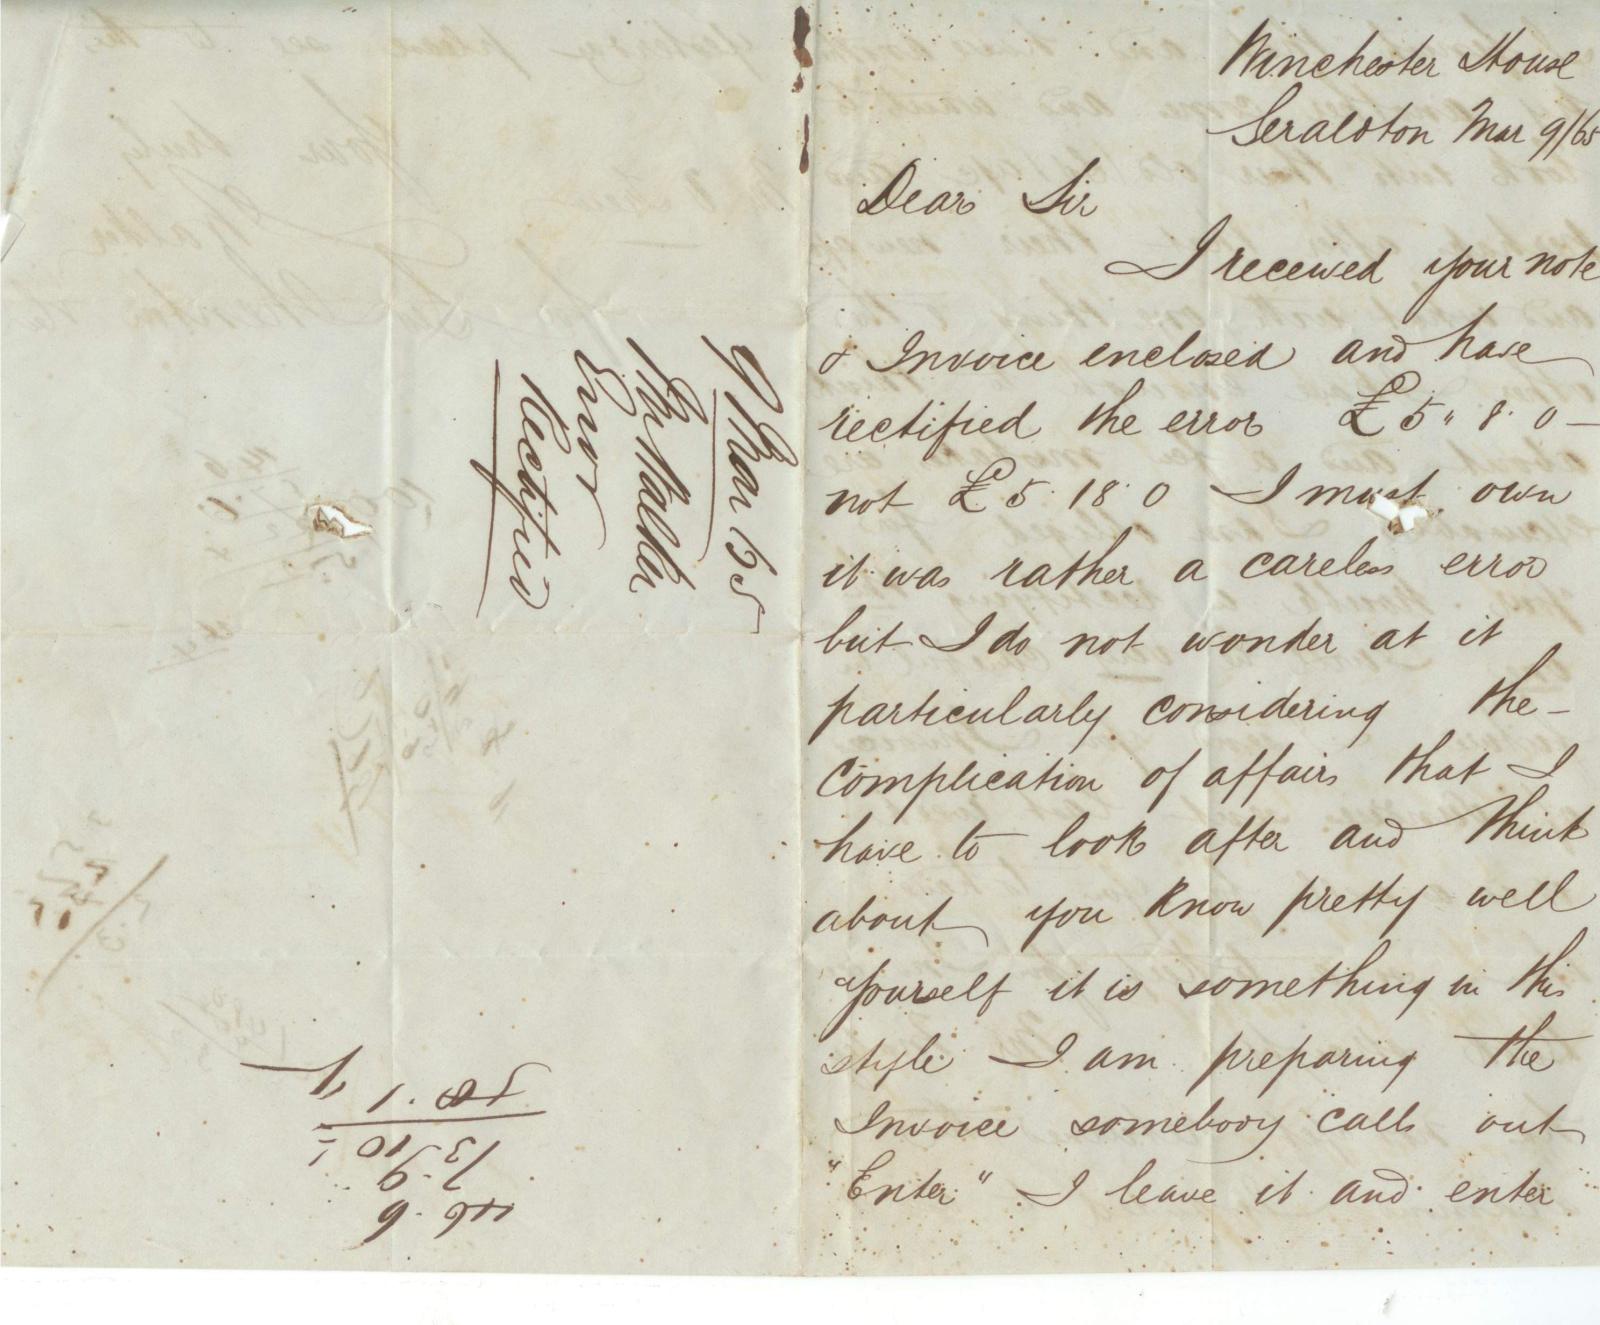 Winchester House
Geraldton Mar 9/65
Dear Sir
I received your note
& Invoice enclosed and have
rectified the error £5" 8. 0 –
not £5. 18. 0 I must own
it was rather a careless error
but I do not wonder at it
particularly considering the –
complication of affairs that I
have to look after and think
about you know pretty well
yourself it is something in this
style I am preparing the
Invoice somebody calls out
"Enter" I leave it and enter
9 Mar 65
Walker
Error
Rectified